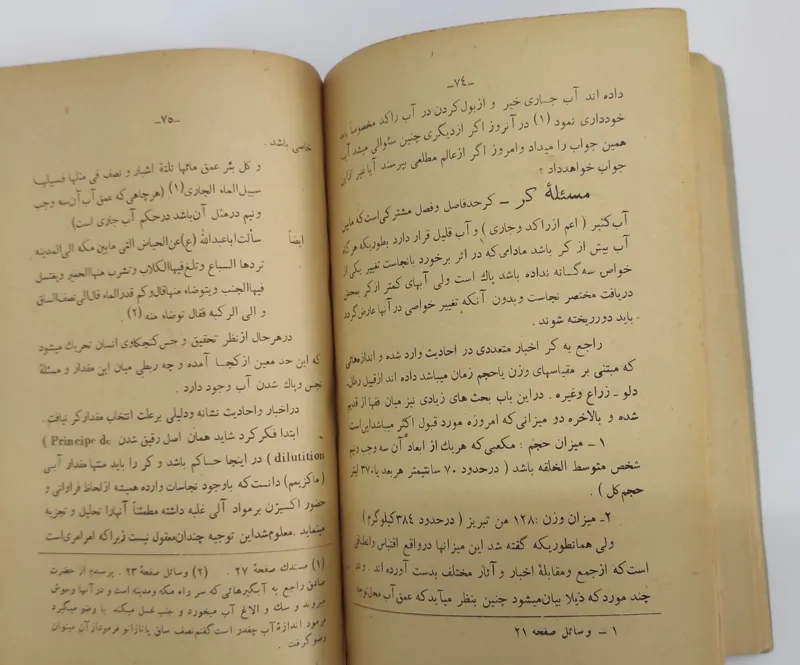 -٧٤-
داده اند آب جاری خیر و ازبول کردن در آب راکد مخصوصاً باید
خودداری نمود (۱) در آنروز اگر ازدیگری چنین سئوالی میشد آب
همین جواب را میداد وامروز اگر ازعالم مطلعی بپرسند آیا غیر از این
جواب خواهدداد ؟
مسئلهٔ کر – کرحدفاصل وفصل مشترکی است که مابین
آب کثیر ( اعم ازراکد وجاری ) و آب قلیل قرار دارد بطوریکه هرگاه
آب بیش از کر باشد مادامی که در اثر برخورد بانجاست تغییر یکی از
خواص سه گانه نداده باشد پاك است ولی آبهای کمتر ازکر بمحض
دریافت مختصر نجاست وبدون آنکه تغییر خواصی در آنها عارض گردد
باید دورریخته شوند .
راجع به کر اخبار متعددی در احادیث وارد شده و اندازه‌هائی
که مبتنی بر مقیاسهای وزن یاحجم زمان میباشد داده اند ازقبیل رطل،
دلو ـ زراع وغیره . دراین باب بحث های زیادی نیز میان فقها از قدیم
شده و بالاخره دو میزانی که امروزه مورد قبول اکثر میباشداین است
۱ – میزان حجم : مکعبی که هریك از ابعاد آن سه وجب ونیم
شخص متوسط الخلقه باشد ( درحدود ۷۰ سانتیمتر هر بعد یا ۳۷۰ لیتر
حجم کل ) .
۲ـ میزان وزن : ۱۲۸ من تبریز ( درحدود ۳۸٤ کیلوگرم )
ولی همانطوریکه گفته شد این میزانها درواقع اقتباس وانطباقی
است که ازجمع ومقابلهٔ اخبار و آثار مختلف بدست آورده اند . و در
چند مورد که ذیلا بیان میشود چنین بنظر میآید که عمق آب محل توجه
۱ – وسائل صفحه ۲۱
-٧٥-
خاصی باشد .
و کل بئر عمق مائها ثلثة اشبار و نصف فی مثلها فسبیلها
سبیل الماء الجاری (۱) (هرچاهی که عمق آب آن سه وجب
ونیم درمثل آن باشد درحکم آب جاری است)
ایضاً سألت اباعبدالله (ع) عن الحیاض التی مابین مکه الی المدینه
تردها السباع وتلغ فیها الکلاب وتشرب منها الحمیر ویغتسل
فیها الجنب ویتوضاء منها قال وکم قدرالماء قال الی نصف الساق
و الی الرکبه فقال توضاء منه (۲)
درهرحال ازنظر تحقیق و حس کنجکاوی انسان تحریك میشود
که این حد معین ازکجا آمده و چه ربطی میان این مقدار و مسئلهٔ
نجس وپاك شدن آب وجود دارد .
دراخبار واحادیث نشانه ودلیلی برعلت انتخاب مقدارکر نیافت .
ابتدا فکرکرد شاید همان اصل رقیق شدن Principe de )
dilutition ) در اینجا حـاکم باشد و کر را باید منتها مقدار آبـی
( ماکزیمم ) دانست که باوجود نجاسات وارده همیشه ازلحاظ فراوانی و
حضور اکسیژن برمواد آلی غلبه داشته مطمئناً آنهارا تحلیل و تجزیه
مینماید . معلوم شداین توجیه چندان معقول نیست زیرا که امر امری است
(۱) مستدك صفحهٔ ۲۷ . (۲) وسائل صفحهٔ ۲۳ . پرسیدم از حضرت
صادق راجع به آبگیرهائی که سر راه مکه ومدینه است و در آنها وحوش
میروند و سك و الاغ آب میخورد و جنب غسل میکند یا وضو میگیرد
فرمود اندازهٔ آب چقدر است گفتم نصف ساق یا تازانو فرمود از آن میتوان
وضو گرفت .